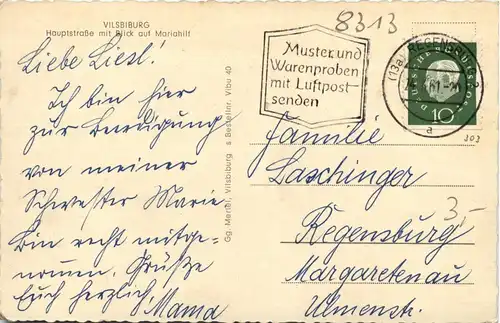 VILSBIBURG
Hauptstraße mit Blick auf Mariahilf
8313
Liebe Liesl!
Ich bin hier
zur Beerdigung
von meiner
Schwester Marie
Bin recht mitge-
nommen. Grüße
Euch herzlich
Mama
Gg. Mertel, Vilsbiburg s Bestellnr. Vibu 40
Muster und
Warenproben
mit Luftpost-
senden
(13a) REGENSBURG 2
61-20
a
Deutsche Bundespost
10
303
Familie
Laschinger
3,-
Regensburg
Margaretenau
Ulmenstr.